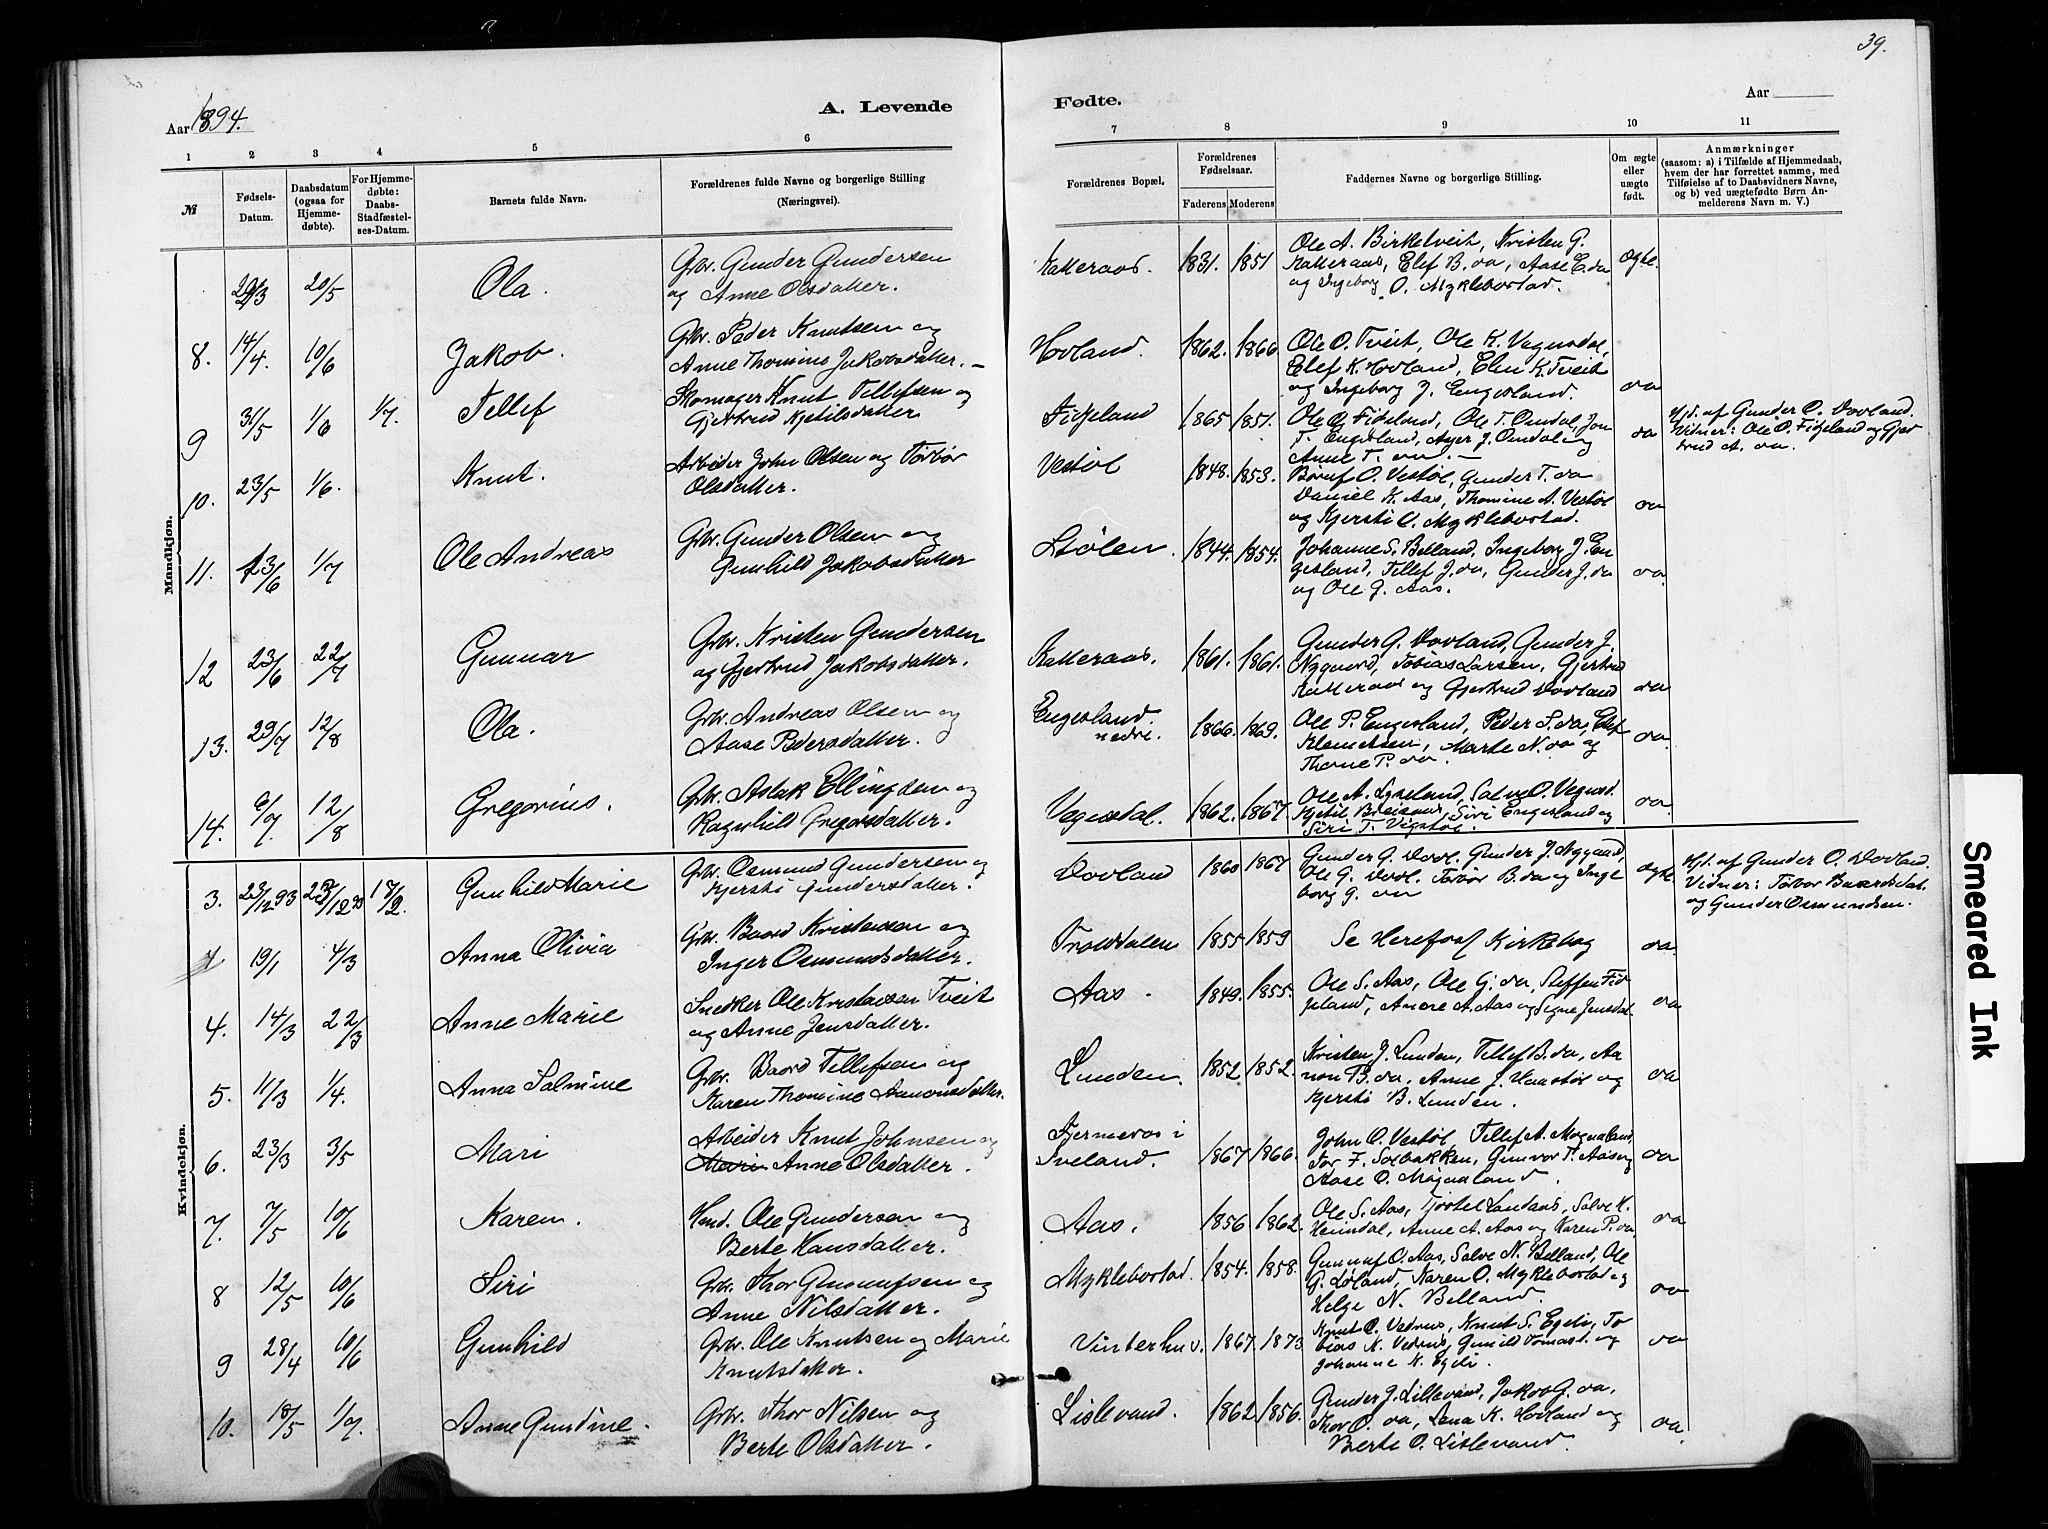 39.
Aar 1894.
A. Levende
Fødte.
Aar
1 2 3 4 5 6 7 8 9 10 11
№
Fødsels-Datum.
Daabsdatum (ogsaa for Hjemme-døbte).
For Hjemme-døbte: Daabs-Stadfæstel-ses-Datum.
Barnets fulde Navn.
Forældrenes fulde Navne og borgerlige Stilling (Næringsvei).
Forældrenes Bopæl.
Forældrenes Fødselsaar.
Faderens Moderens
Faddernes Navne og borgerlige Stilling.
Om ægte eller uægte født.
Anmærkninger
(saasom: a) i Tilfælde af Hjemmedaab, hvem der har forrettet samme, med Tilføielse af to Daabsvidners Navne, og b) ved uægtefødte Børn An-melderens Navn m. V.)
Mandkjøn.
20/5 Ola. Gbr. Gunder Gundersen
og Anne Olsdatter.
Katteraas. 1831. 1851
Ole A. Birketveit, Kristen G.
Katteraas, Elef B. do, Aase E. do
og Ingeborg O. Myklebostad.
ægte.
8. 14/4 10/6 Jakob. Gbr. Peder Knutsen og
Anne Thomine Jakobsdatter. -
Hovland. 1862. 1866
Ole O. Tveit, Ole K. Vegusdal,
Elef K. Hovland, Elen K. Tveit
og Ingeborg J. Engesland.
do
9 31/5 1/6 1/7. Tellef Skomager Knut Tellefsen og
Gjertrud Kjetilsdatter
Fidjeland 1865 1851.
Ole O. Fidjeland, Ole T. Omdal, Jon
T. Engesland, Ager J. Omdal og
Anne T. do. -
do
Hjd. af Gunder O. Dovland.
Vidner: Ole O. Fidjeland og Gjer
trud A. do.
10. 23/5 1/6. Knut. Arbeider John Olsen og Torbor
Olsdatter.
Vestøl 1848. 1853.
O. Vestøl, Gunder T. do
Daniel K. Aas, Thomine A. Vestøl
og Kjersti O. Myklebostad.
do
11. 23/6 1/7 Ole Andreas Gbr. Gunder Olsen og
Gunhild Jakobsdatter
Stølen. 1844. 1854.
Johanne S. Belland, Ingeborg J. En
gesland, Tellef J. do, Gunder J. do
og Ole G. Aas.
do.
12 23/6 22/7 Gunnar Gbr. Kristen Gundersen
og Gjertrud Jakobsdatter.
Katteraas. 1861. 1861.
Gunder G. Dovland, Gunder J.
Nygaard, Tobias Larsen, Gjertrud
Katteraas og Gjertrud Dovland
do
13. 29/7 12/8 Ola. Gbr. Andreas Olsen og
Aase Pedersdatter.
Engesland
nedri. 1866. 1869.
Ole P. Engesland, Peder S. do, Elef
Klemetsen, Marte N. do og
Thorne P. do.
do
14. 12/8 Gregorius. Gbr. Aslak Ellingsen og
Ragnhild Gregorsdatter.
Vegusdal. 1862. 1867.
Ole A. Lyseland, Salve O. Vegusd.
Kjetil Breisaas, Siri Engesland og
Siri T. Vigstøl.
do.
Kvindekjøn.
3. 23/12 93 Gunhild Marie Gbr. Osmund Gundersen og
Kjersti Gundersdatter.
Dovland 1860 1867
Gunder G. Dovl. Gunder J. Nygaard,
Ole G. Dovl. Torbor B. do og Inge
borg G. do
ægte.
Hjd. af Gunder O. Dovland.
Vidner: Torbor Baardsdat.
og Gunder Osmundsen.
19/1 4/3 Anna Olivia Gbr. Baard Kristensen og
Inger Osmundsdatter.
Troldalen 1855 1859
Se Herefoss Kirkebog
do
4. 14/3 22/3 Anne Marie Snedker Ole Kristensen Tveit
og Anne Jensdatter.
Aas. 1849. 1855.
Ole S. Aas, Ole G. do, Steffen Fid
jeland, Andre A. Aas og Signe Jensdat.
do
5. 11/3 1/4. Anna Salmine Gbr. Baard Tellefsen og
Karen Thomine Aanonsdatter.
Lunden. 1852. 1852.
Kristen J. Lunden, Tellef B. do, Aa
non B. do, Anne J. Haastøl og
Kjersti B. Lunden.
do
6. 23/3 3/5 Mari Arbeider Knut Johnsen og
Mari Anne Olsdatter.
Fjermeros i
Iveland. 1867 1866.
John O. Vestøl, Tellef A. Mogaland,
Tor F. Solbakken, Gunvor T. Aas og
Aase O. Mogaland.
do
7. 7/5 10/6 Karen. Hmd. Ole Gundersen og
Berte Hansdatter.
Aas. 1856 1862.
Ole S. Aas, Tjøstel Landaas, Salve K.
Heimdal, Anne A. Aas og Karen P. do.
do
8 12/5 10/6 Siri Gbr. Thor Gunnufsen og
Anne Nilsdatter.
Myklebostad. 1854. 1858.
Gunnuf O. Aas, Salve N. Belland, Ole
G. Løland, Karen O. Myklebostad og
Helge N. Belland.
do
9 28/4 10/6 Gunhild Gbr. Ole Knutsen og Marie
Knutsdatter.
Vinterhus. 1867. 1873
Knut O. Vedrus, Knut S. Egeli, To
bias K. Vedrus, Gunild Tomasd. og
Johanne K. Egeli.
do
10. 18/5 1/7. Anne Gundine. Gbr. Thor Nilsen og
Berte Olsdatter.
Lislevand. 1862 1856.
Gunder J. Lillevand, Jakob G. do,
Thor O. do, Lena K. Hovland og
Berte O. Lislevand.
do.
Smeared Ink